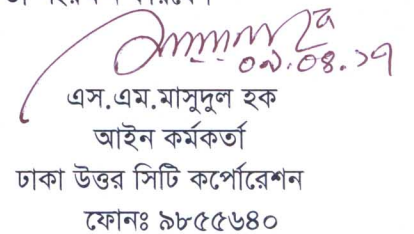 ০৯.০৪.১৭
এস.এম.মাসুদুল হক
আইন কর্মকর্তা
ঢাকা উত্তর সিটি কর্পোরেশন
ফোনঃ ৯৮৫৫৬৪০